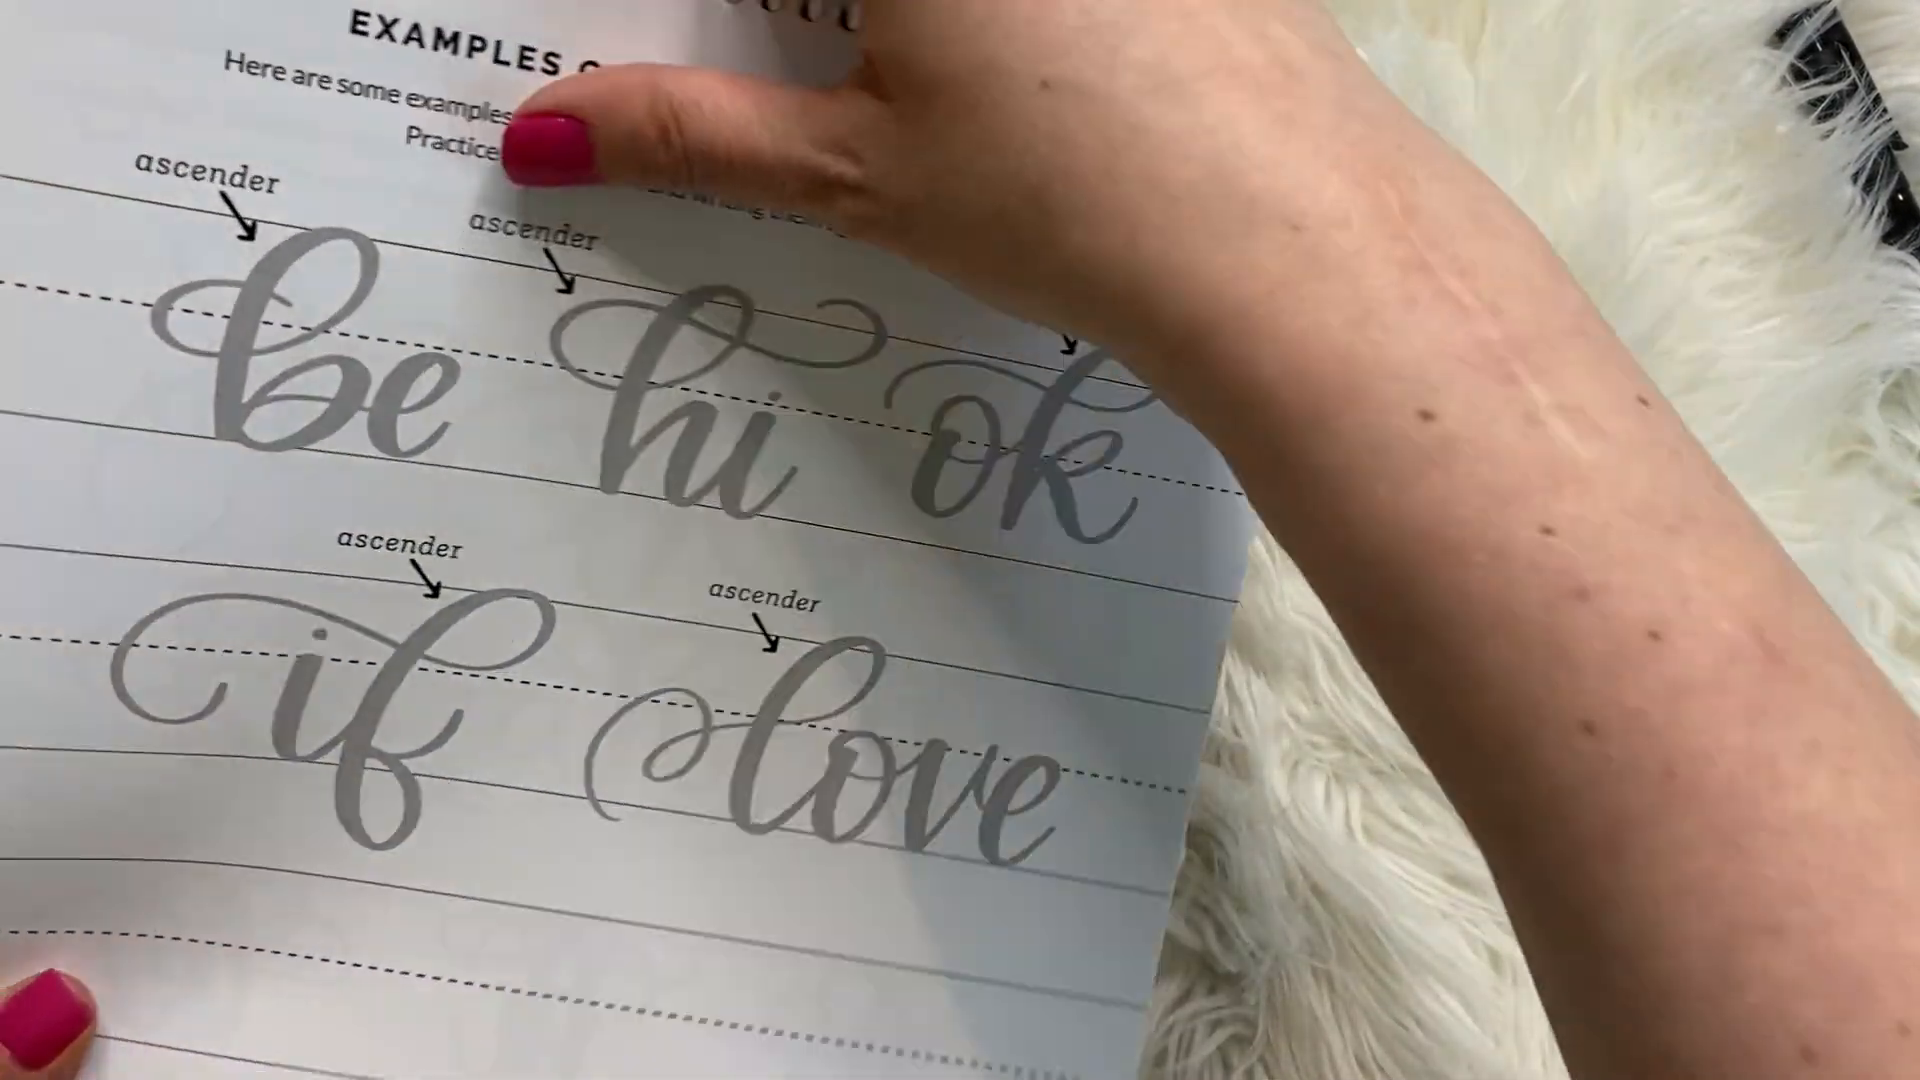 EXAMPLES
Here are some examples
Practice
ascender
ascender
be hi ok
ascender
ascender
if love